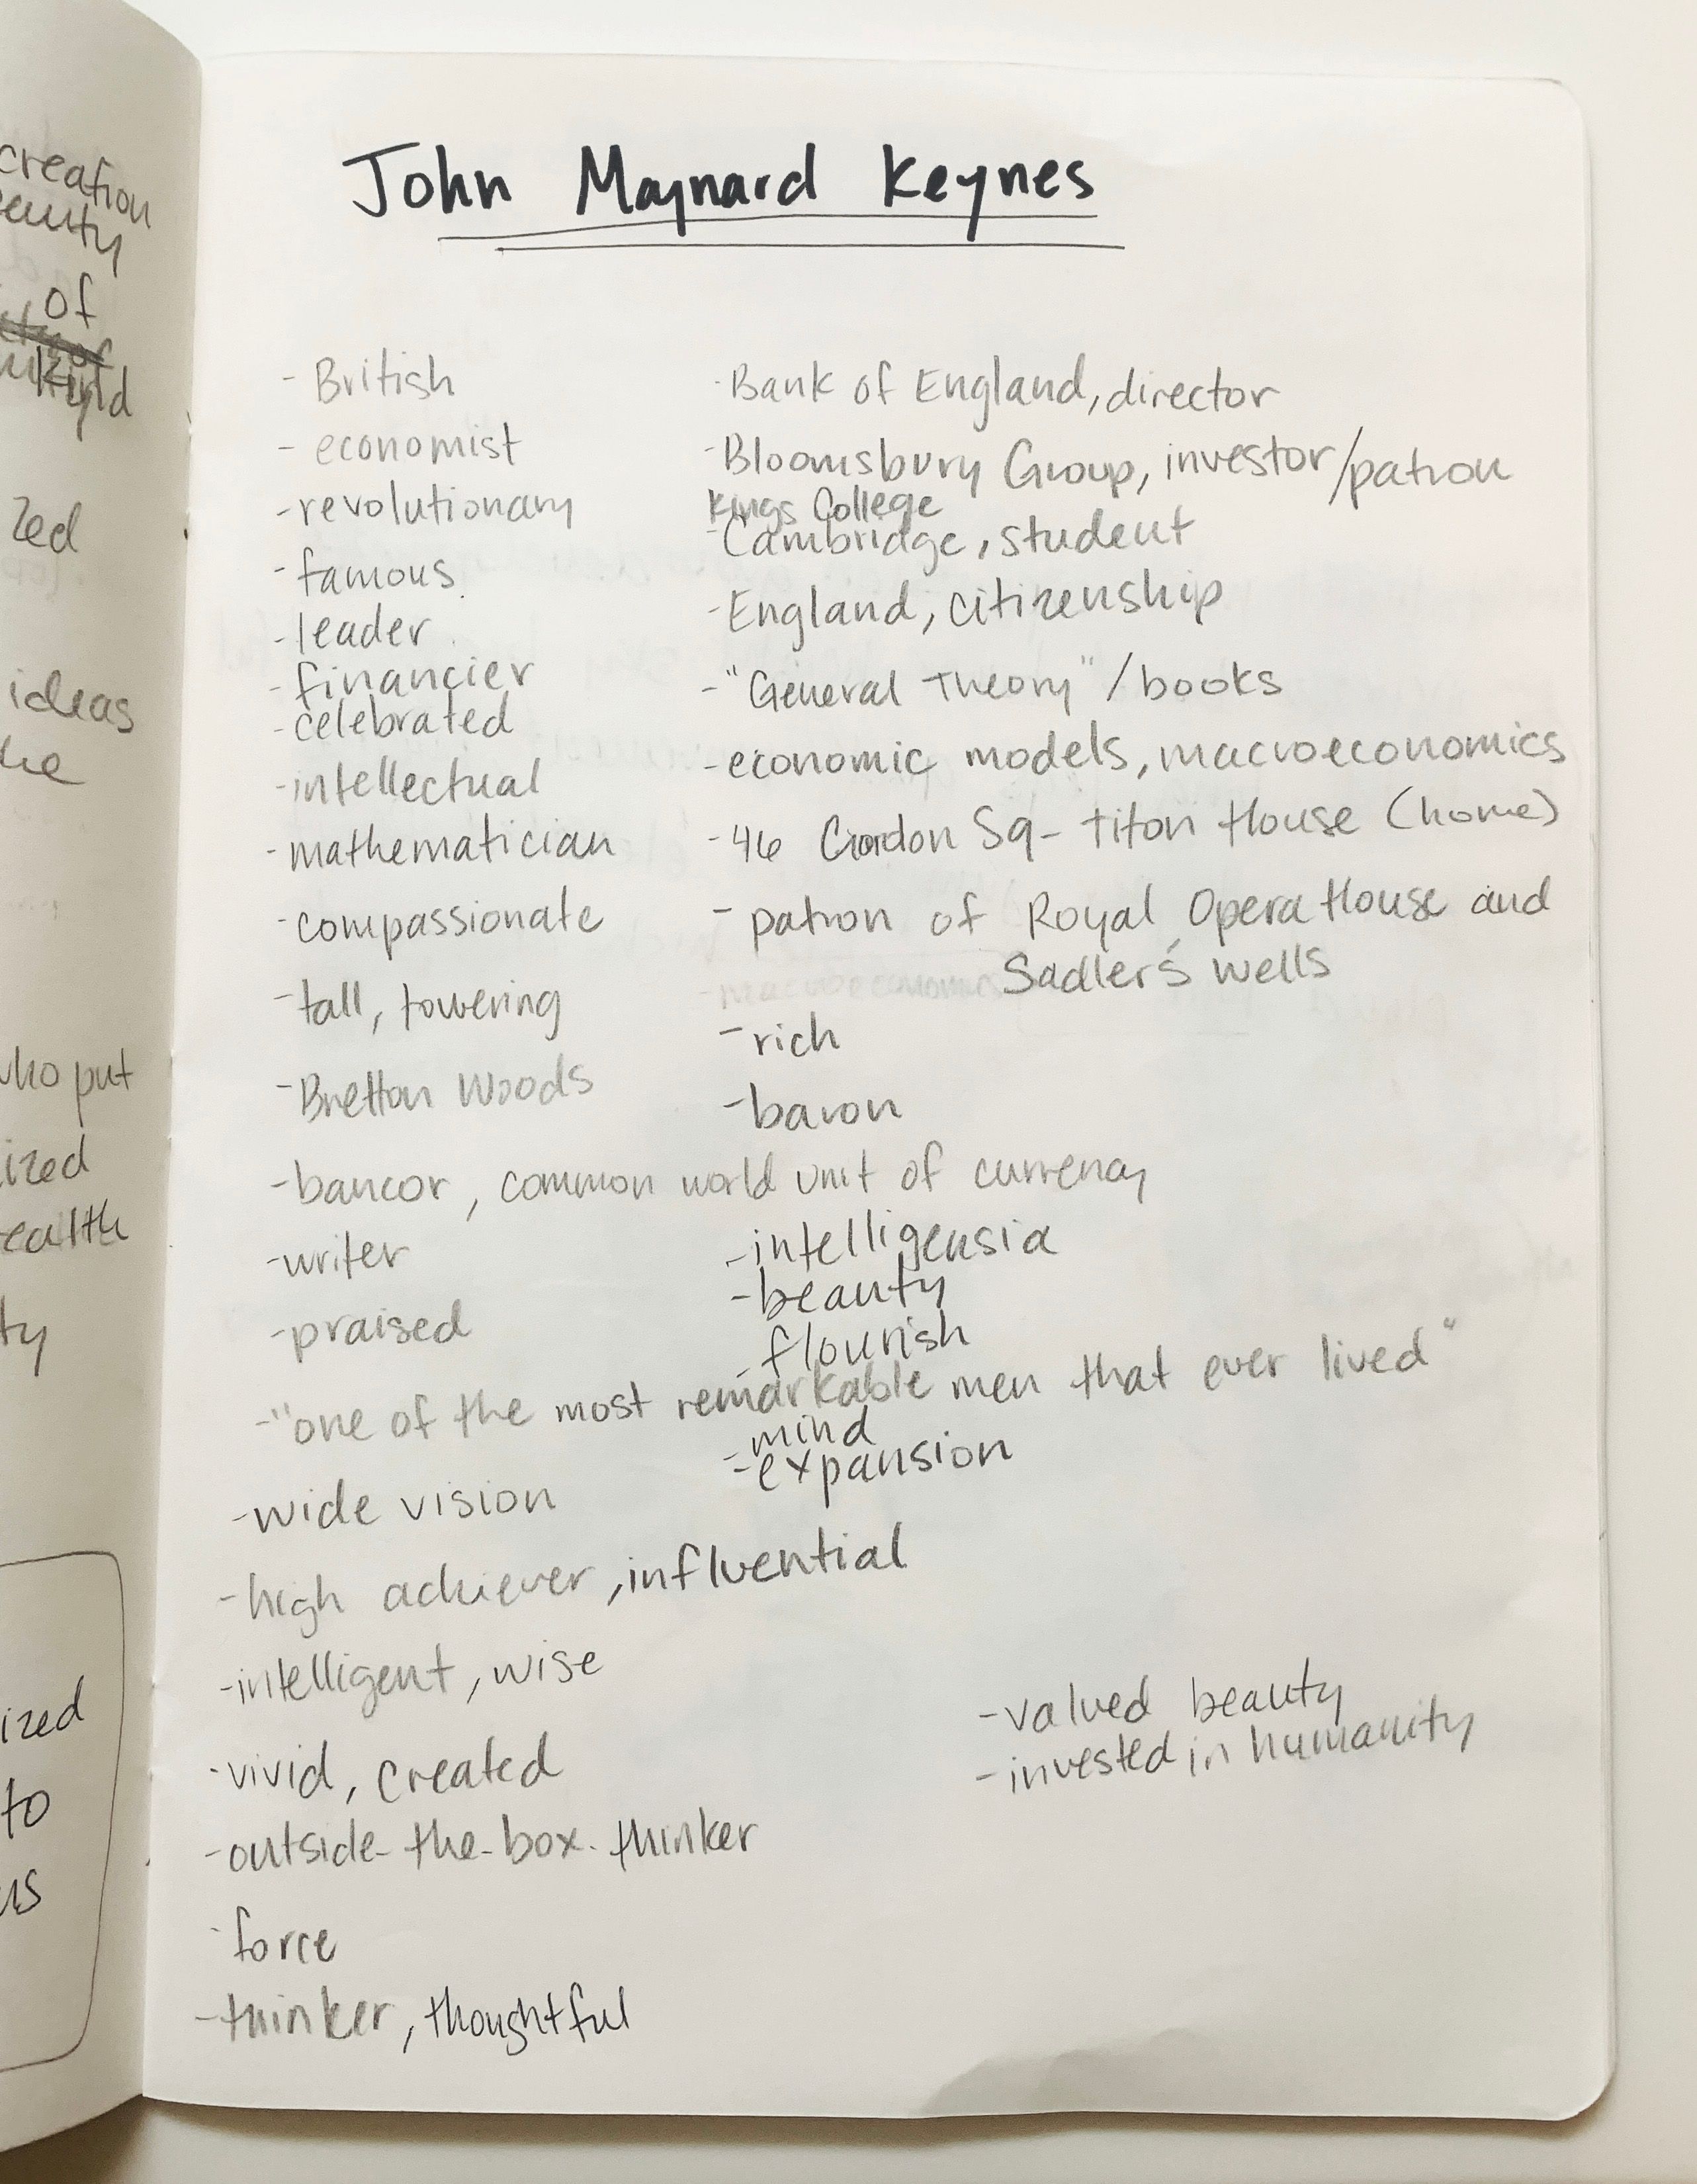 creation
of
zed
ideas
who put
ized
to
John Maynard Keynes
- British
- economist
- revolutionary
- famous
- leader
- financier
- celebrated
- intellectual
- mathematician
- compassionate
- tall, towering
- Bretton Woods
- bancor, common world unit of currency
- writer
- praised
- "one of the most remarkable men that ever lived"
- wide vision
- high achiever, influential
- intelligent, wise
- vivid, created
- outside-the-box-thinker
- force
- thinker, thoughtful
- Bank of England, director
- Bloomsbury Group, investor/patron
Kings College
- Cambridge, student
- England, citizenship
- "General Theory" / books
- economic models, macroeconomics
- 46 Gordon Sq - Tilton House (home)
- patron of Royal Opera House and
Sadler's wells
- macroeconomics
- rich
- baron
- intelligensia
- beauty
- flourish
mind
- expansion
- valued beauty
- invested in humanity